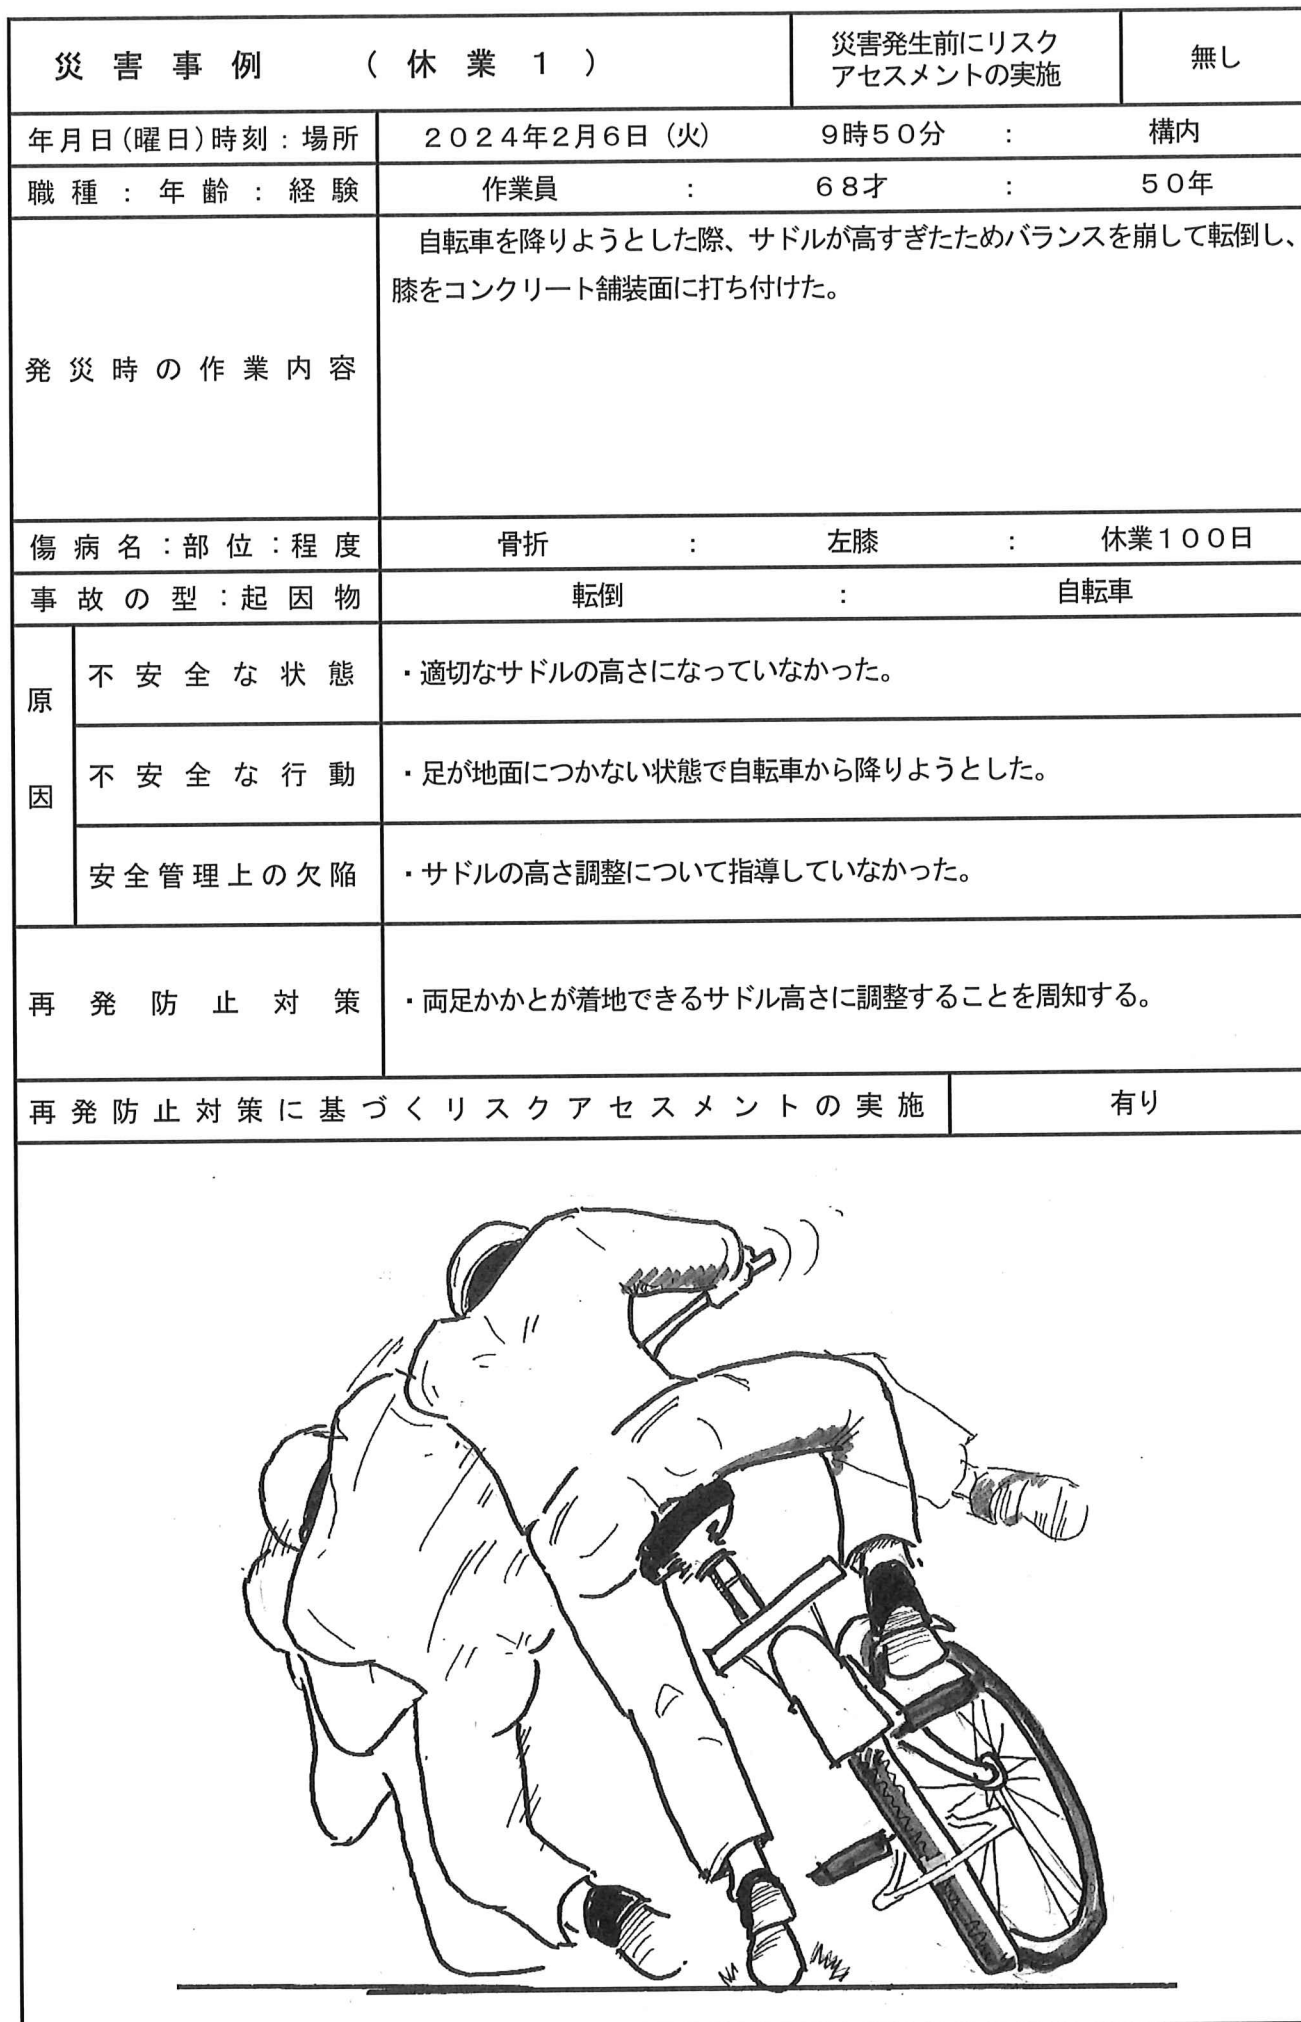 災害事例 （休業１）
災害発生前にリスク
アセスメントの実施
無し
年月日(曜日)時刻：場所 ２０２４年２月６日（火） ９時５０分 ： 構内
職種：年齢：経験 作業員 ： ６８才 ： ５０年
発災時の作業内容
自転車を降りようとした際、サドルが高すぎたためバランスを崩して転倒し、
膝をコンクリート舗装面に打ち付けた。
傷病名：部位：程度 骨折 ： 左膝 ： 休業１００日
事故の型：起因物 転倒 ： 自転車
原因
不安全な状態 ・適切なサドルの高さになっていなかった。
不安全な行動 ・足が地面につかない状態で自転車から降りようとした。
安全管理上の欠陥 ・サドルの高さ調整について指導していなかった。
再発防止対策 ・両足かかとが着地できるサドル高さに調整することを周知する。
再発防止対策に基づくリスクアセスメントの実施 有り